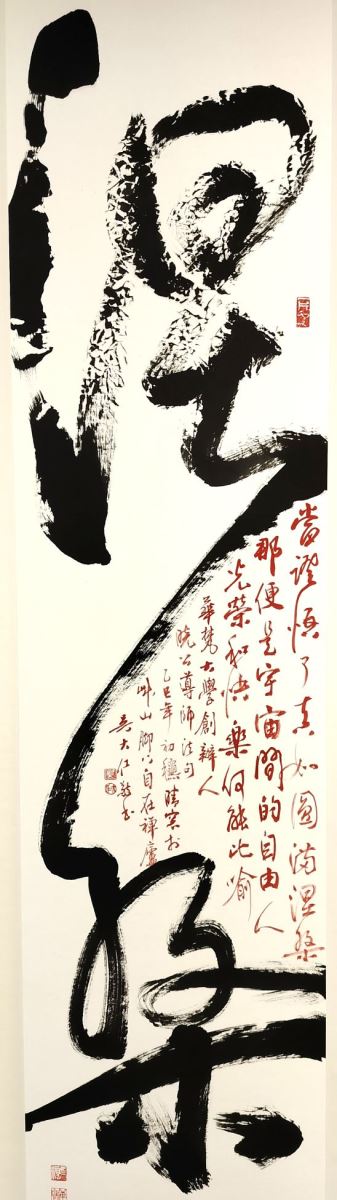 涅槃
當證悟了真如圓滿涅槃
那便是宇宙間的自由人
光榮和快樂何能比喻
華梵大學創辦人
曉公尊師法句
乙巳年初穐晴窯於
山腳下自在禪廬
吳大仁敬書